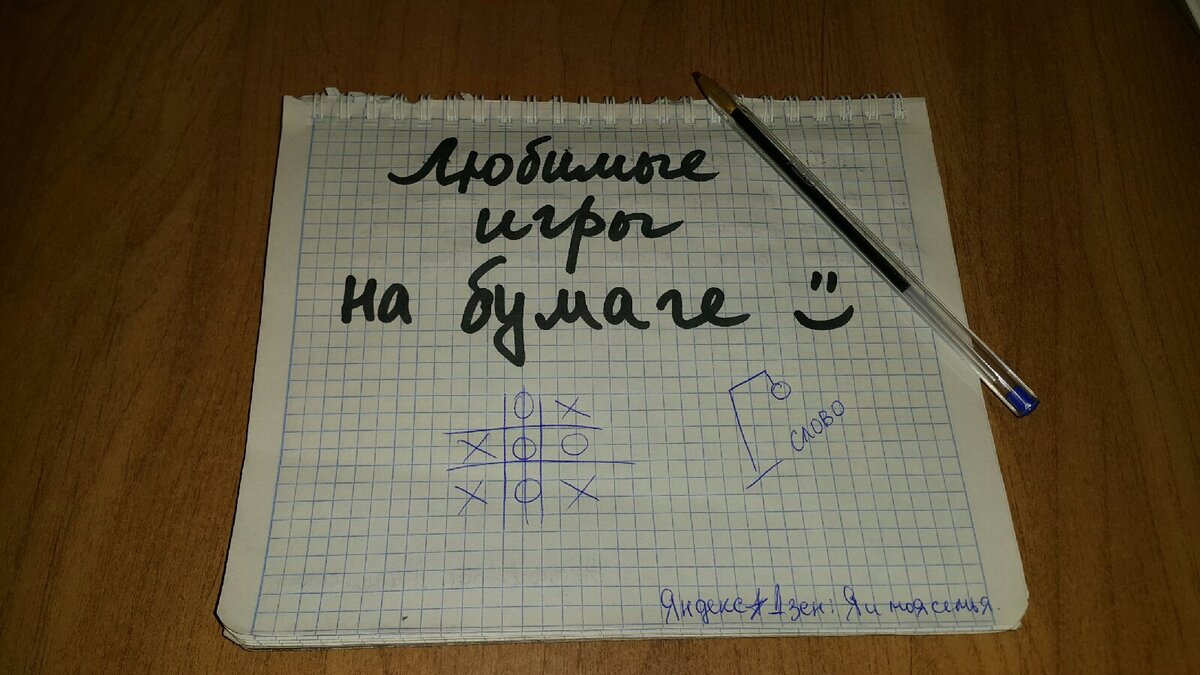 Любимые
игры
на бумаге
O X
X O O
X O X
слово
Яндекс Дзен: Я и моя семья.